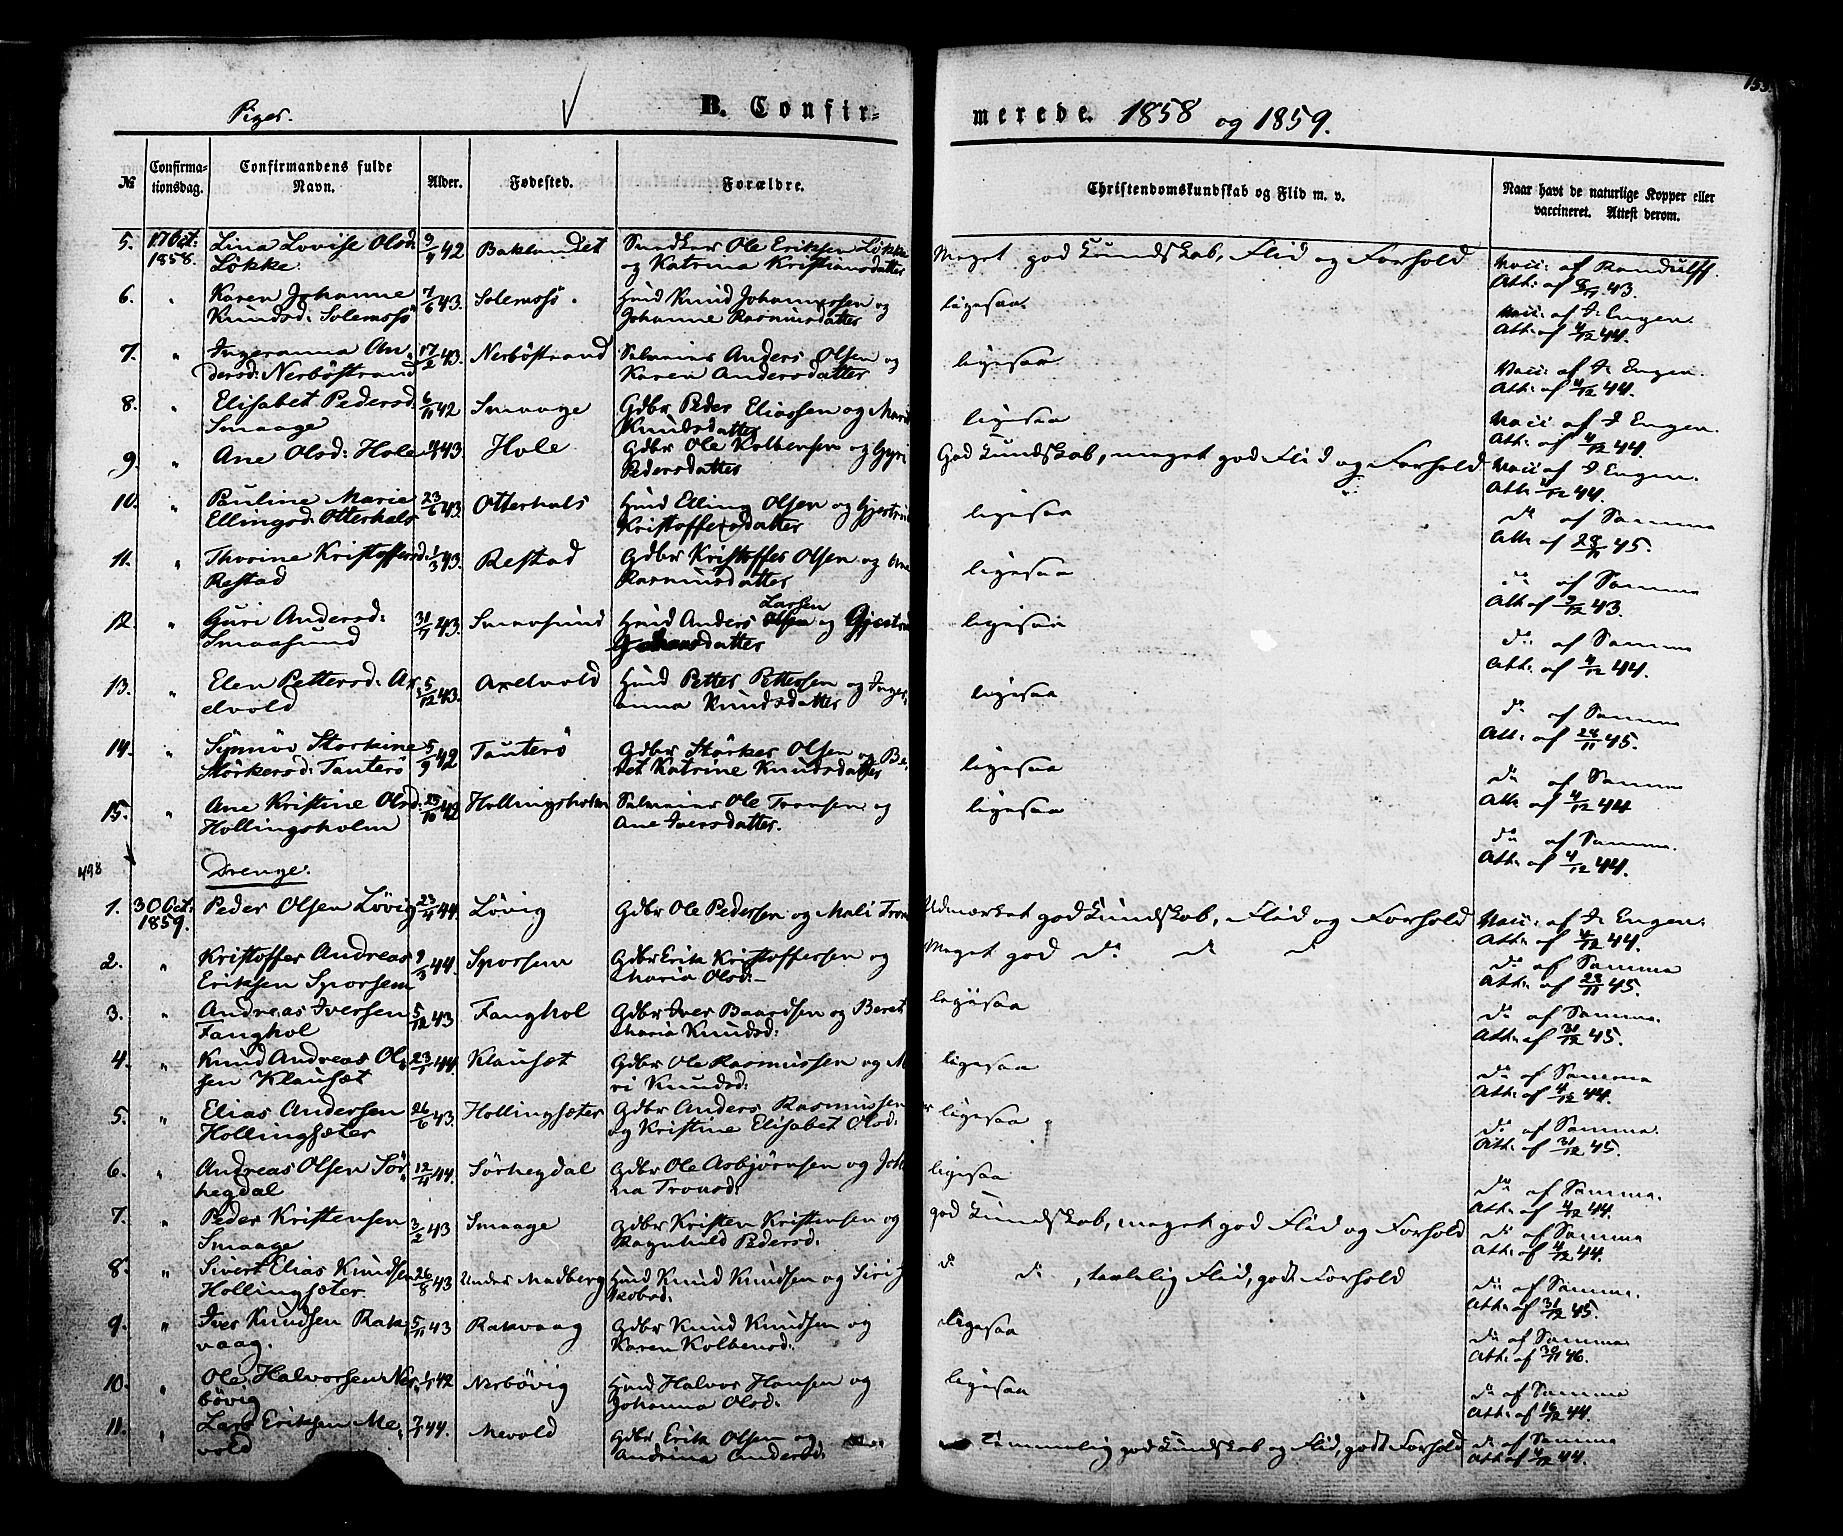 153.
Piger.
B. Confir-
merede. 1858 og 1859.
№
Confirma-
tionsdag.
Confirmandens fulde
Navn.
Alder.
Fødested.
Forældre.
Christendomskundskab og Flid m. v.
Naar havt de naturlige Kopper eller
vaccineret. Attest derom.
5. 17 Oct: Lina Lovise Olsd: 9/4 42 Baklandet Snedker Ole Eriksen Løkke Meget god Kundskab, Flid og Forhold Vacc: af Randulff
1858. Løkke. og Katrina Kristiansdatter Att: af 43.
6. " Karen Johanne 7/6 43. Solemoss. Huusmd Knud Johannessen og ligesaa. Vacc: af I. Engen.
Knudsd: Solemoss Johanne Rasmusdatter Att: af 4/12 44.
7. " Ingeranna An- 17/2 43. Nerbøstrand Selveier Anders Olsen og ligesaa Vacc: af I. Engen.
dersd: Nerbøstrand Karen Andersdatter Att: af 4/12 44.
8. " Elisabet Pedersd: 6/11 42 Smaage Gdbr Peder Eliassen og Marit ligesaa Vacc: af I Engen.
Smaage Knudsdatter Att: af 4/12 44.
9. " Ane Olsd: Hole 43. Hole Gdbr Ole Kolbensen og Gyri God Kundskab, meget god Flid og Forhold Vacc: af I Engen.
Pedersdatter Att: 4/12 44.
10. " Pauline Marie 23/6 43. Otterhals Huusmd Elling Olsen og Gjertrud ligesaa do af Samme
Ellingsd: Otterhals Kristoffersdatter Att: af 28/11 45.
11. " Thorine Kristoffersd: 1/3 43. Restad Gdbr Kristoffer Olsen og Ane ligesaa do af Samme
Restad Rasmusdatter Att: af 9/12 43.
12. " Guri Andersd: 31/7 43. Smaasund Huusmd Anders Larsen og Gjertrud ligesaa do af Samme
Smaasund Johansdatter Att: af 4/12 44.
13. " Elen Pettersd: Ax- 5/12 43. Axelvold Huusmd Petter Pettersen og Inger ligesaa do af Samme
elvold anna Knudsdatter Att: af 28/11 45.
14. " Synnøv Storkine 5/9 42 Tauterø Gdbr Størker Olsen og Be- ligesaa do af Samme
Størkersd: Tauterø ret Katrine Knudsdatter Att: af 4/12 44
15. " Ane Kristine Olsd: 23/10 42 Hollingsholm Selveier Ole Tronsen og ligesaa do af Samme.
Hollingsholm Ane Iversdatter. Att: af 4/12 44.
498
Drenge.
1. 3 Oct: Peder Olsen Løvig 23/4 44. Løvig Gdbr Ole Pedersen og Mali Trons Udmærket god Kundskab, Flid og Forhold Vacc: af I. Engen.
1859. Att: af 4/12 44.
2. " Kristoffer Andreas 9/3 44. Sporsem Gdbr Erik Kristoffersen og Meget god do do do do af Samme
Eriksen Sporsem Maria Olsd: Att: af 28/11 45.
3. " Andreas Iversen 5/12 43 Fanghol Gdbr Iver Baardsen og Beret ligesaa do af Samme.
Fanghol Maria Knudsd: Att: af 31/12 45.
4. " Knud Andreas Ol- 23/1 44. Klauset Gdbr Ole Rasmussen og M ligesaa do af Samme
sen Klauset ri Knudsd: Att: af 4/12 44.
5. " Elias Andersen 26/6 43. Hollingsæter Gdbr Anders Rasmussen ligesaa do af Samme.
Hollingsæter og Kristine Elisabet Olsd: Att: af 31/12 45.
6. " Andreas Olsen Sør- 12/4 44. Sørhegdal Gdbr Ole Asbjørnsen og Joh ligesaa do af Samme.
hegdal na Tronsd: Att: af 4/12 44.
7. " Peder Kristensen 3/2 43 Smaage Gdbr Kristen Kristensen og god Kundskab, meget god Flid og Forhold do af Samme
Smaage Ragnhild Pedersd: Att: af 4/12 44.
8. " Sivert Elias Knudsen 26/8 43 Under Madberg Huusmd Knud Knudsen og Siri J do do, taalelig Flid, godt Forhold do af Samme.
Hollingsæter. kobsd: Att: af 31/12 45.
9. " Iver Knudsen Rak- 5/11 43 Rakvaag Gdbr Knud Knudsen og Ligesaa do af Samme
vaag. Karen Kolbensd: Att: af 30/11 46.
10. " Ole Halvorsen Ner- 42 Nerbøvig Huusmd Halvor Hansen og ligesaa do af Samme
bøvig Johanna Olsd: Att: af 16/12 44.
11. " Lars Eriksen Me- 44. Mevold Gdbr Erik Olsen og Temmelig god Kundskab og Flid, godt Forhold do af Samme
vold Andrina Andersd: Att: af 4/12 44.